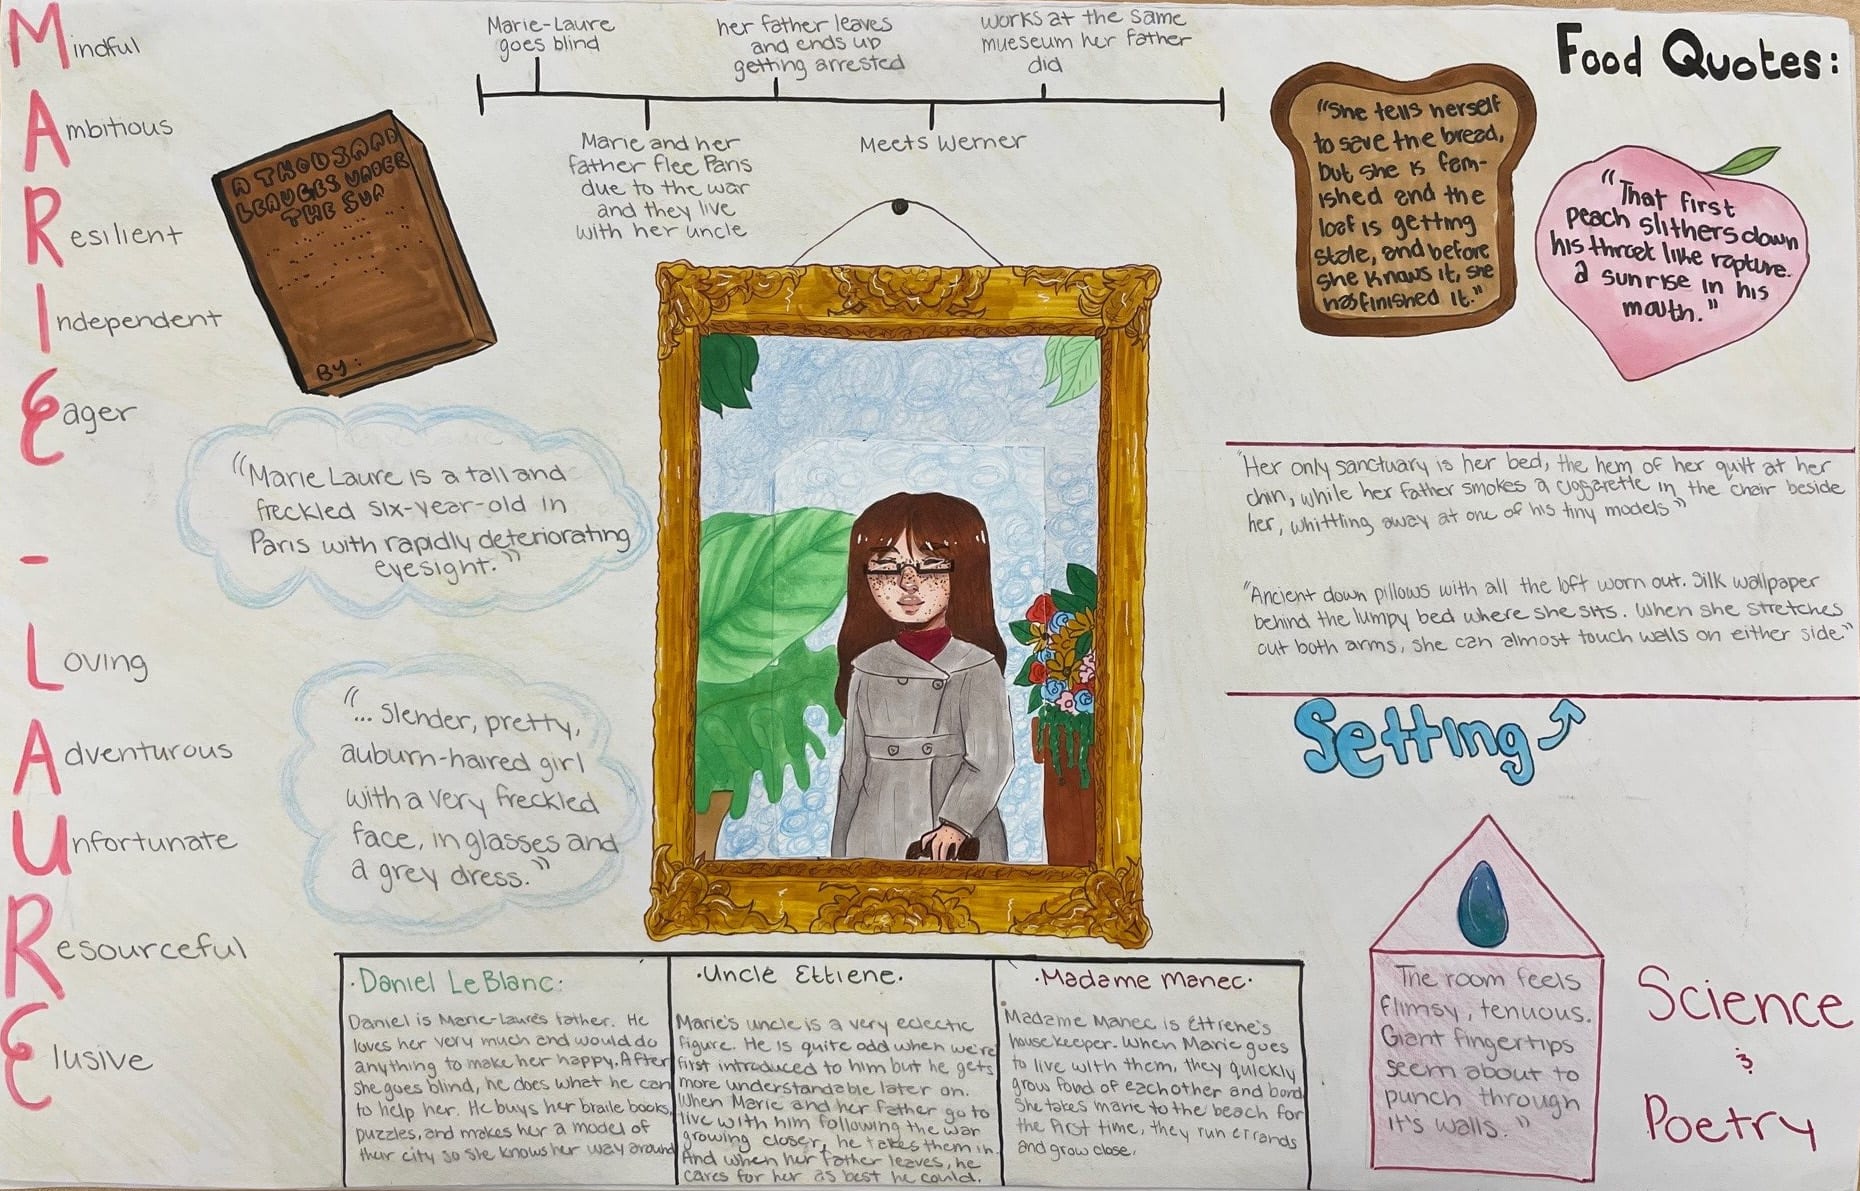 Mindful
Ambitious
Resilient
Independent
Eager
-
Loving
Adventurous
Unfortunate
Resourceful
Elusive
Marie-Laure
goes blind
her father leaves
and ends up
getting arrested
works at the same
mueseum her father
did
Marie and her
father flee Paris
due to the war
and they live
with her uncle
Meets Werner
A THOUSAND
LEAUGES UNDER
THE SUN
By:
"Marie Laure is a tall and
freckled six-year-old in
Paris with rapidly deteriorating
eyesight."
"... Slender, pretty,
auburn-haired girl
with a very freckled
face, in glasses and
a grey dress."
Food Quotes:
"She tells herself
to save the bread,
but she is fam-
ished and the
loaf is getting
stale, and before
she knows it, she
has finished it."
"That first
peach slithers down
his throat like rapture.
a sunrise in his
mouth."
"Her only sanctuary is her bed, the hem of her quilt at her
chin, while her father smokes a ciggarette in the chair beside
her, whittling away at one of his tiny models"
"Ancient down pillows with all the loft worn out. Silk wallpaper
behind the lumpy bed where she sits. When she stretches
out both arms, she can almost touch walls on either side."
Setting
The room feels
flimsy, tenuous.
Giant fingertips
seem about to
punch through
it's walls."
Science
&
Poetry
·Daniel LeBlanc:
Daniel is Marie-Laure's father. He
loves her very much and would do
anything to make her happy. After
she goes blind, he does what he can
to help her. He buys her braile books,
puzzles, and makes her a model of
their city so she knows her way around
·Uncle Ettiene·
Marie's uncle is a very eclectic
figure. He is quite odd when we're
first introduced to him but he gets
more understandable later on.
When Marie and her father go to
live with him following the war
growing closer, he takes them in.
And when her father leaves, he
cares for her as best he could.
·Madame Manec·
Madame Manec is Ettiene's
housekeeper. When Marie goes
to live with them, they quickly
grow fond of eachother and bond
She takes marie to the beach for
the first time, they run errands
and grow close.